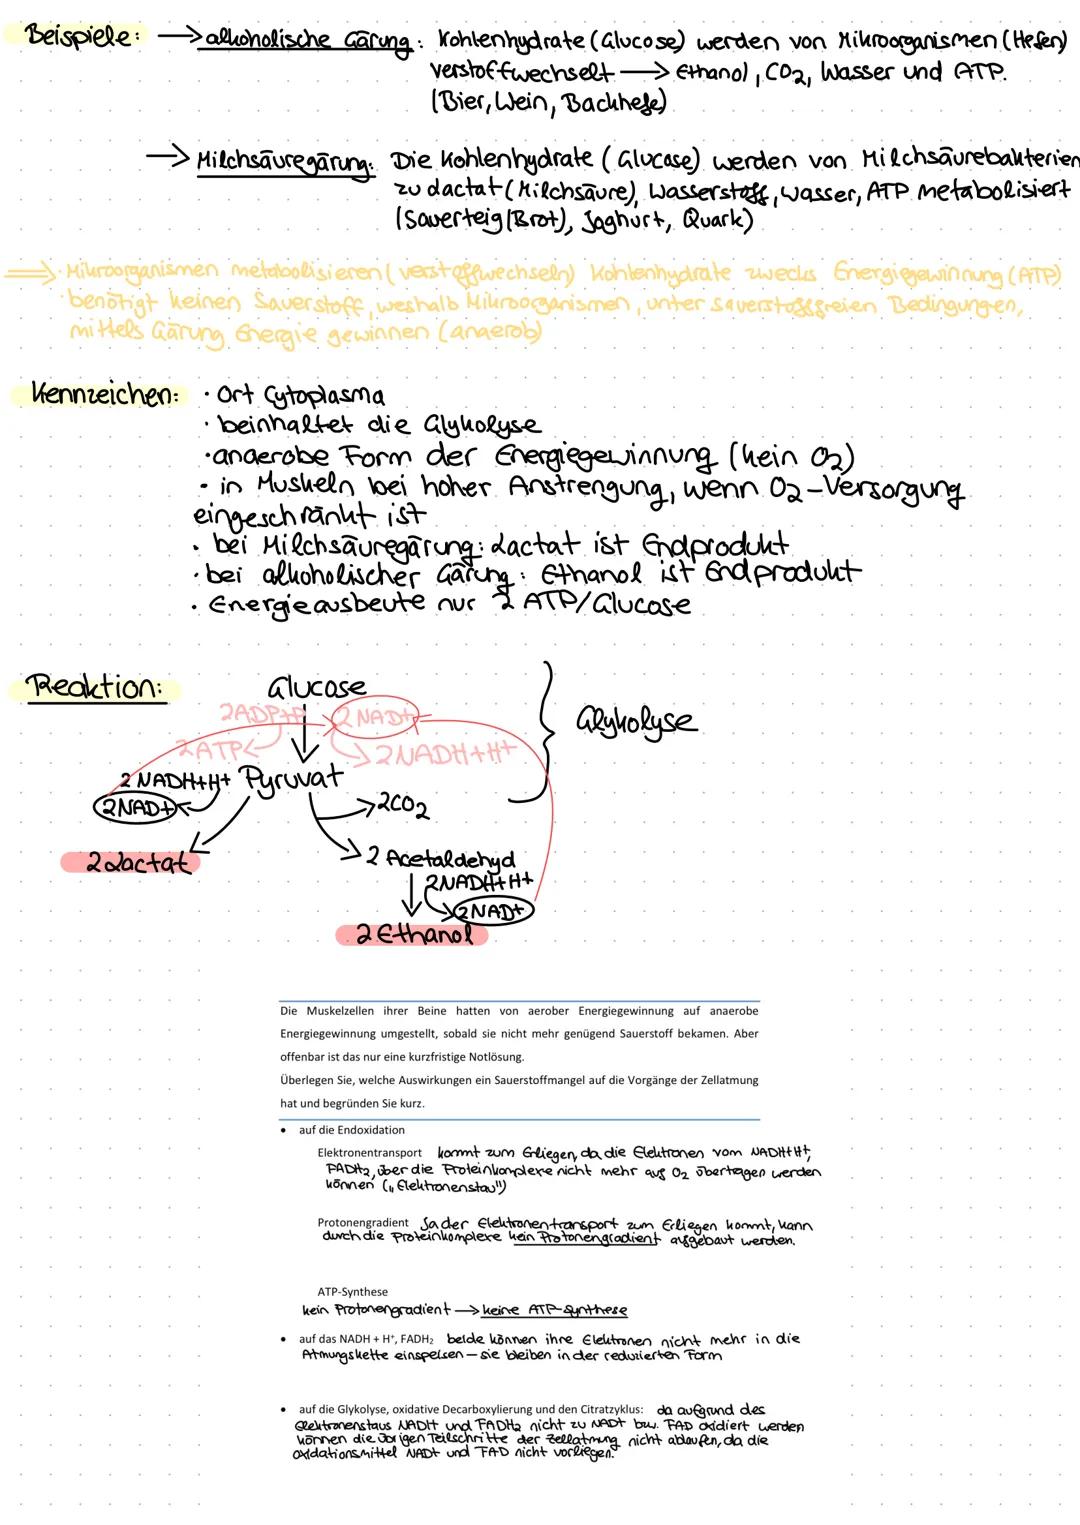 Beispiele: → alkoholische Gärung: Kohlenhydrate (Glucose) werden von Mikroorganismen (Hefen)
verstoffwechselt → Ethanol, CO2, Wasser und ATP.
(Bier, Wein, Backhefe)
→ Milchsäuregärung: Die Kohlenhydrate (Glucose) werden von Milchsäurebakterien
zu Lactat (Milchsäure), Wasserstoff, Wasser, ATP metabolisiert
(Sauerteig (Brot), Joghurt, Quark)
⇒ · Mikroorganismen metabolisieren (verstoffwechseln) Kohlenhydrate zwecks Energiegewinnung (ATP)
· benötigt keinen Sauerstoff, weshalb Mikroorganismen, unter sauerstofffreien Bedingungen,
mittels Gärung Energie gewinnen (anaerob)
Kennzeichen: · Ort Cytoplasma
· beinhaltet die Glykolyse
· anaerobe Form der Energiegewinnung (kein O2)
· in Muskeln bei hoher Anstrengung, wenn O2-Versorgung
eingeschränkt ist
· bei Milchsäuregärung: Lactat ist Endprodukt
· bei alkoholischer Gärung: Ethanol ist Endprodukt
· Energieausbeute nur 2 ATP/Glucose
Reaktion: Glucose
2ADP+P 2 NAD+ Glykolyse
2ATP 2NADH+H+
2 NADH+H+ Pyruvat
2NAD+ → 2CO2
2 Lactat 2 Acetaldehyd
2NADH+H+
2NAD+
2 Ethanol
Die Muskelzellen ihrer Beine hatten von aerober Energiegewinnung auf anaerobe
Energiegewinnung umgestellt, sobald sie nicht mehr genügend Sauerstoff bekamen. Aber
offenbar ist das nur eine kurzfristige Notlösung.
Überlegen Sie, welche Auswirkungen ein Sauerstoffmangel auf die Vorgänge der Zellatmung
hat und begründen Sie kurz.
• auf die Endoxidation
Elektronentransport kommt zum Erliegen, da die Elektronen vom NADH+H+,
FADH2, über die Proteinkomplexe nicht mehr auf O2 übertragen werden
können („Elektronenstau")
Protonengradient Da der Elektronentransport zum Erliegen kommt, kann
durch die Proteinkomplexe kein Protonengradient aufgebaut werden.
ATP-Synthese
kein Protonengradient → keine ATP-Synthese
• auf das NADH + H⁺, FADH₂ beide können ihre Elektronen nicht mehr in die
Atmungskette einspeisen – sie bleiben in der reduzierten Form
• auf die Glykolyse, oxidative Decarboxylierung und den Citratzyklus: da aufgrund des
Elektronenstaus NADH und FADH2 nicht zu NAD+ bzw. FAD oxidiert werden
können die übrigen Teilschritte der Zellatmung nicht ablaufen, da die
Oxidationsmittel NAD+ und FAD nicht vorliegen.